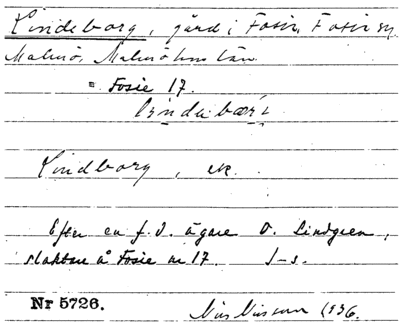 Lindeborg, gård i Fosie, Fosie sn,
Malmö, Malmöhus län.
= Fosie 17.
Lindborg, ek.
Efter en f.d. ägare O. Lindgren,
slaktare å Fosie nr 17. J-s.
Nr 5726.
Nils Nilsson 1936.